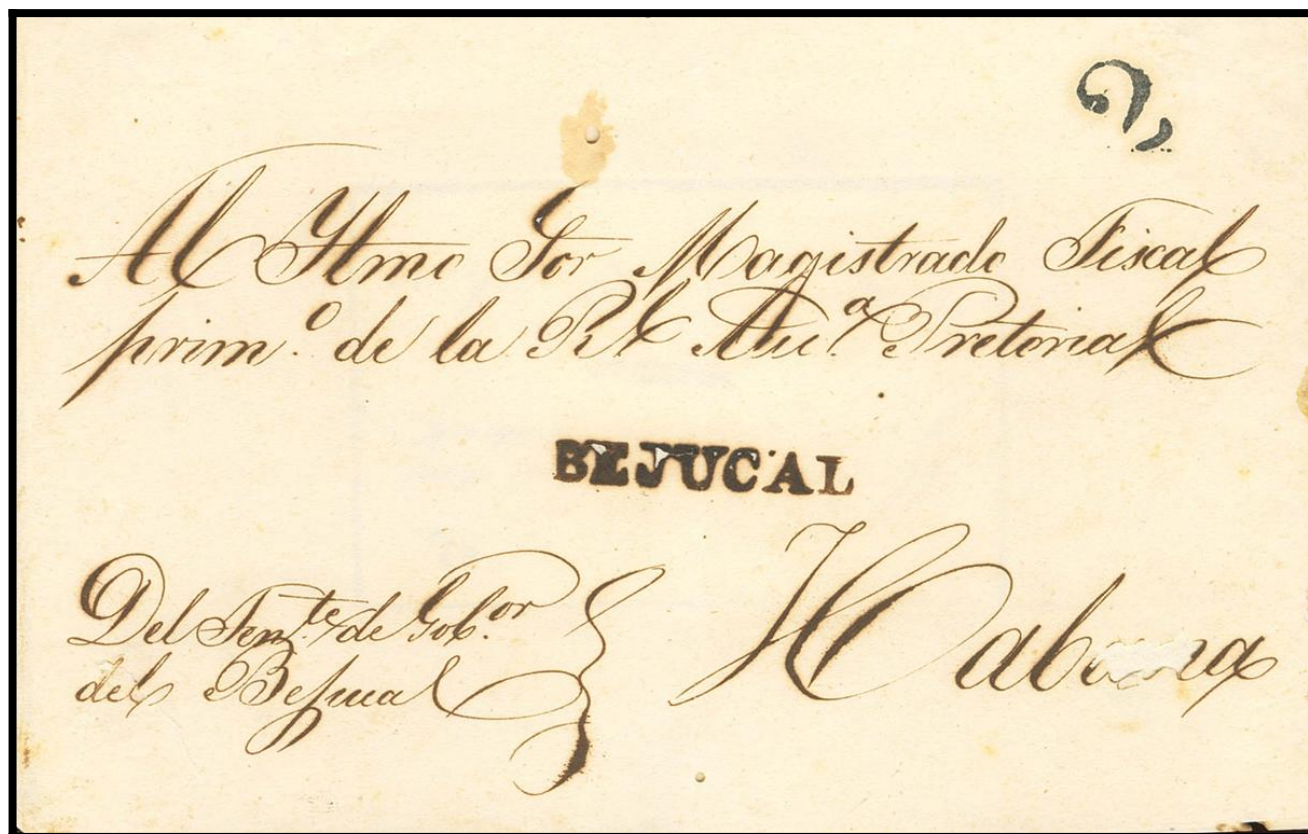 2
Al Yltmo Sor Magistrado Fiscal
prim.º de la Rl Au.ª Pretorial
BEJUCAL
Del Ten.te de Gob.or
del Bejucal
Habana